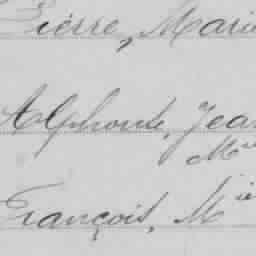 Pierre, Marie
Alphonse, Jean
M
François, M ie